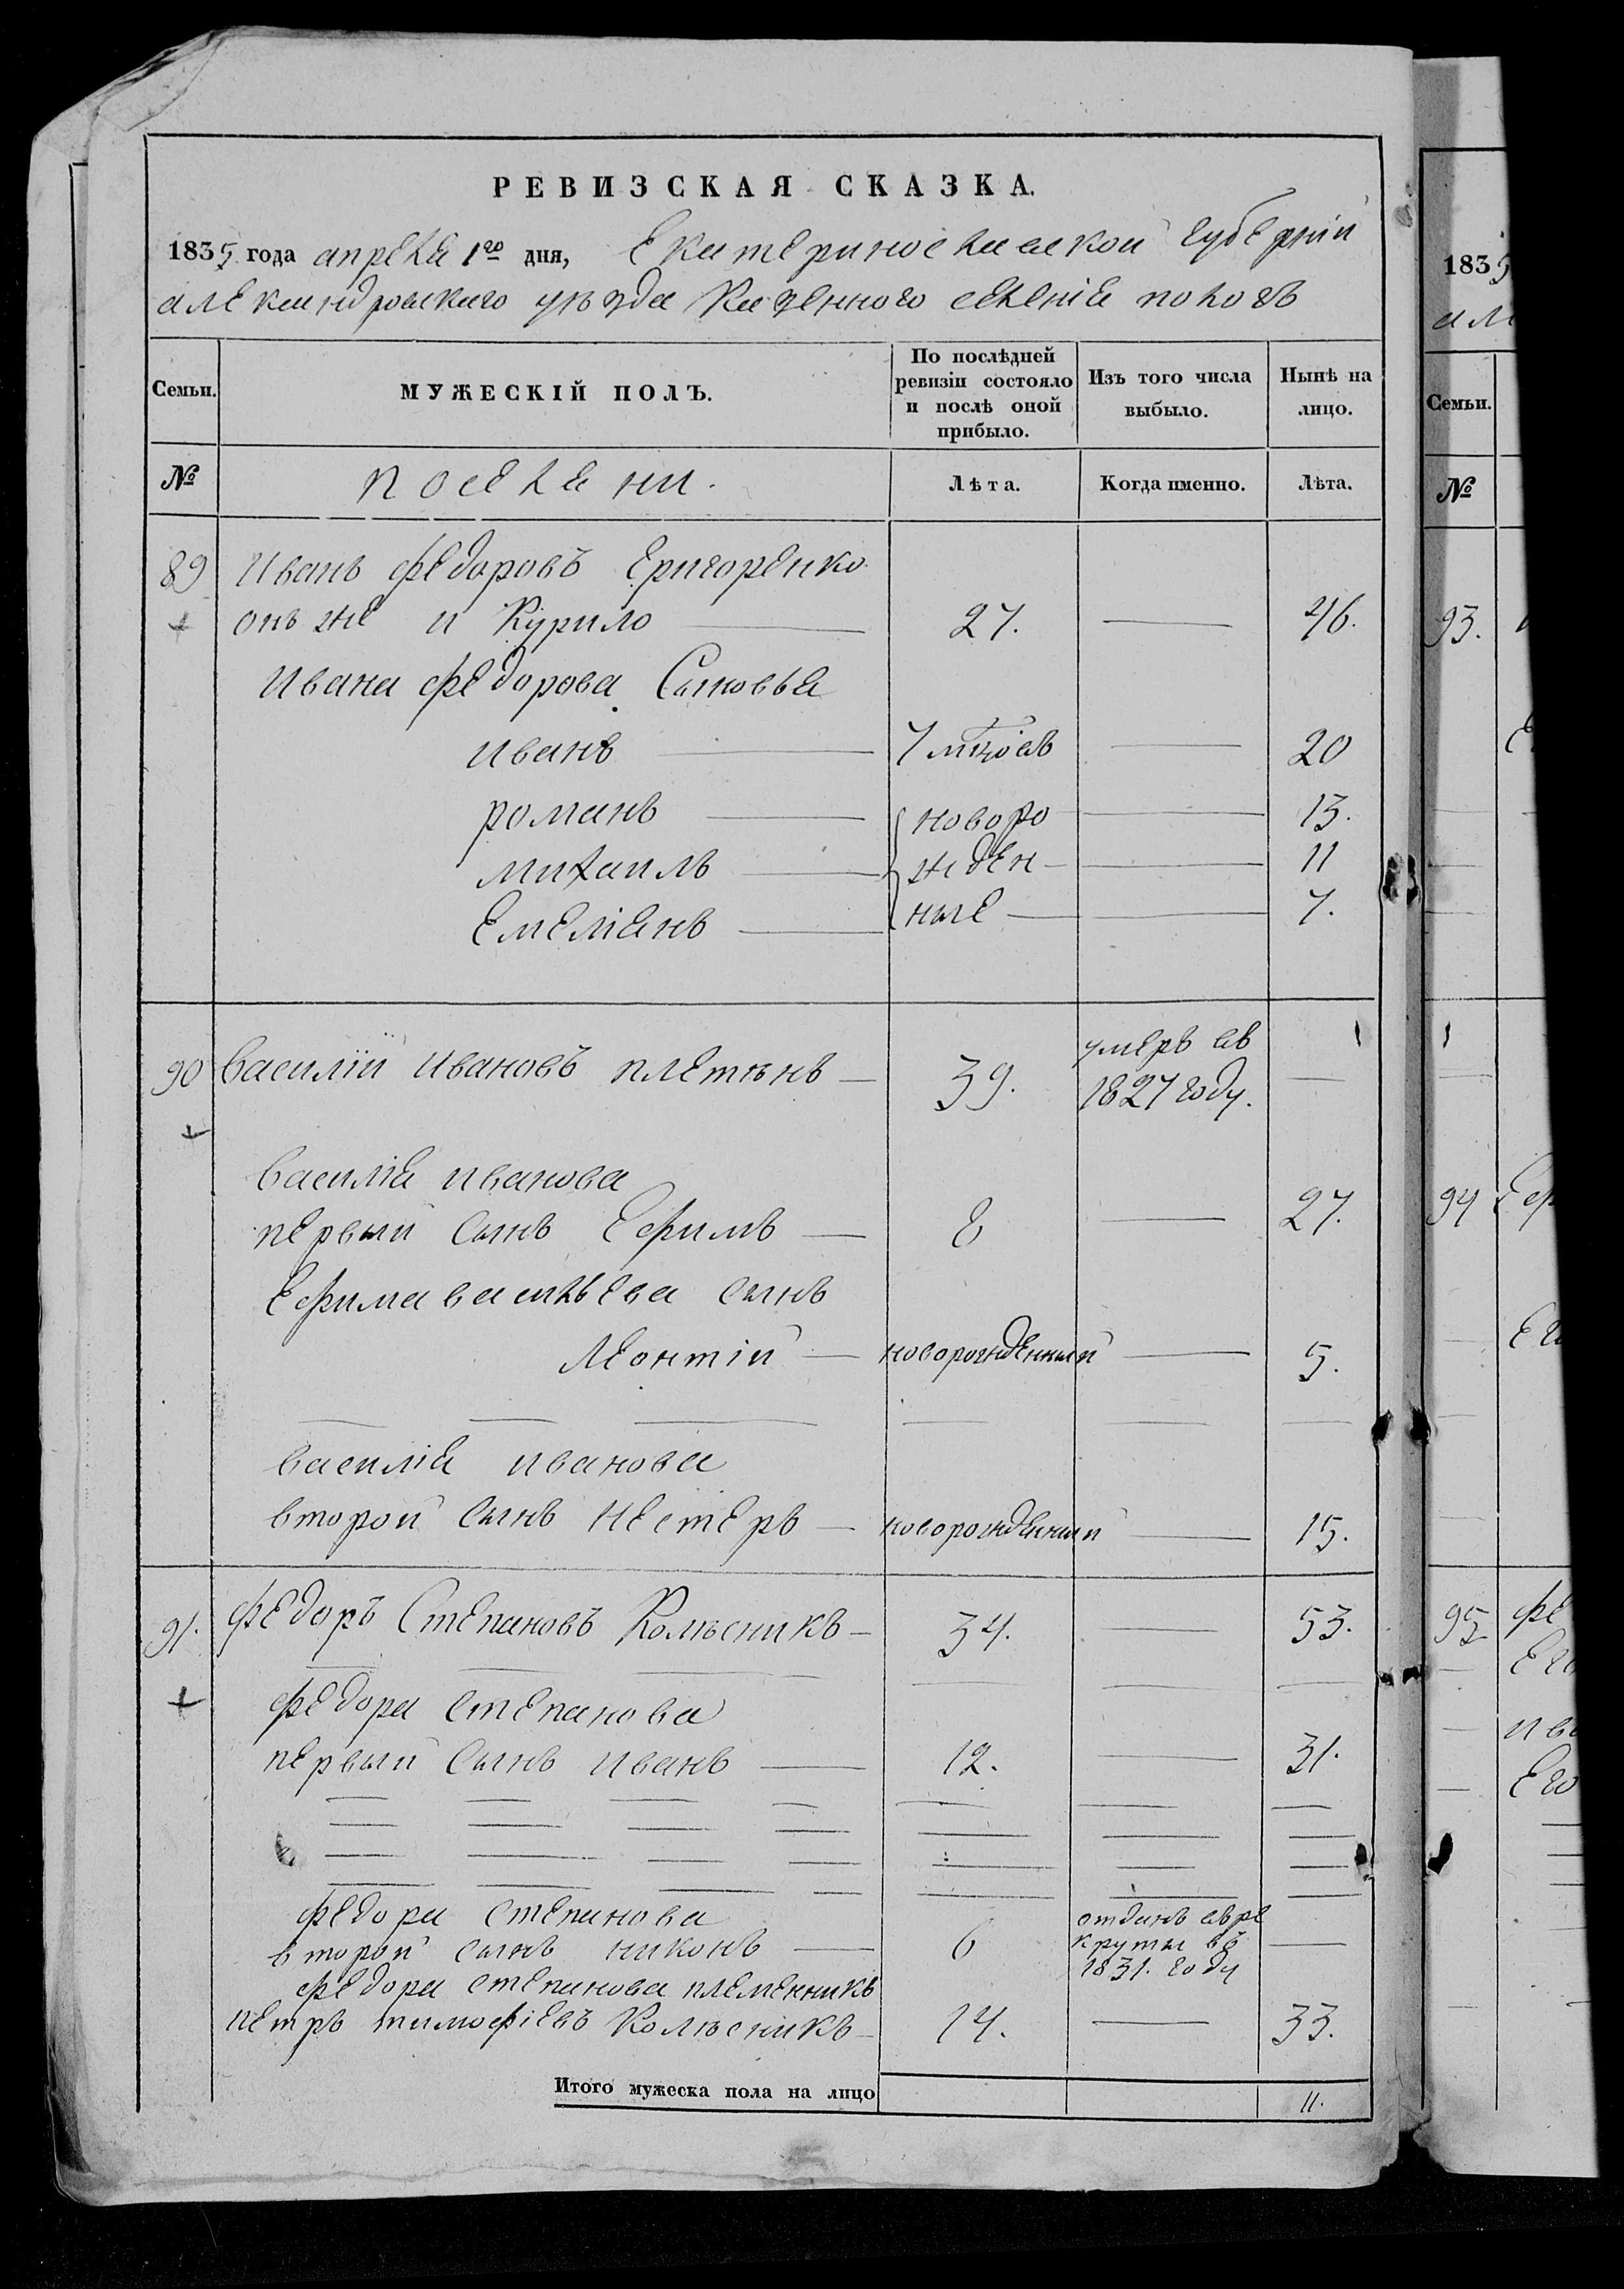 РЕВИЗСКАЯ СКАЗКА.
1835 года апреля 1го дня, Екатеринославской губернии
александровского уъзда Казенного селения пологъ
Семьи. МУЖЕСКІЙ ПОЛЪ. По послѣдней ревизіи состояло и послѣ оной прибыло. Изъ того числа выбыло. Нынѣ на лицо.
№ поселяни. Лѣта. Когда именно. Лѣта.
89 Иванъ федоровъ Григоренко
онъ же и Курило 27. 46.
Ивана федорова Сыновья
иванъ 7 мцовъ 20
романъ новоро 13.
михаилъ жден 11
Емелiянъ ные 7.
90 василiй ивановъ плетѣнь 39. умеръ въ 1827 году.
василiя иванова
первый сынъ Ефимъ 8 27.
Ефима васильева сынъ
Леонтiй новорожденный 5.
василiя иванова
второй сынъ нестеръ новорожденный 15.
91. федоръ Степановъ Колѣсникъ 34. 53.
федора степанова
первый сынъ иванъ 12. 31.
федора степанова
второй сынъ никонъ 6 отданъ врекруты въ 1831. году
федора степанова племенникъ
петръ тимофiевъ Колѣсникъ 14. 33.
Итого мужеска пола на лицо 11.
1835
ал
Семьи.
№
93.
94 Еф
95 фе
Его
ива
Его